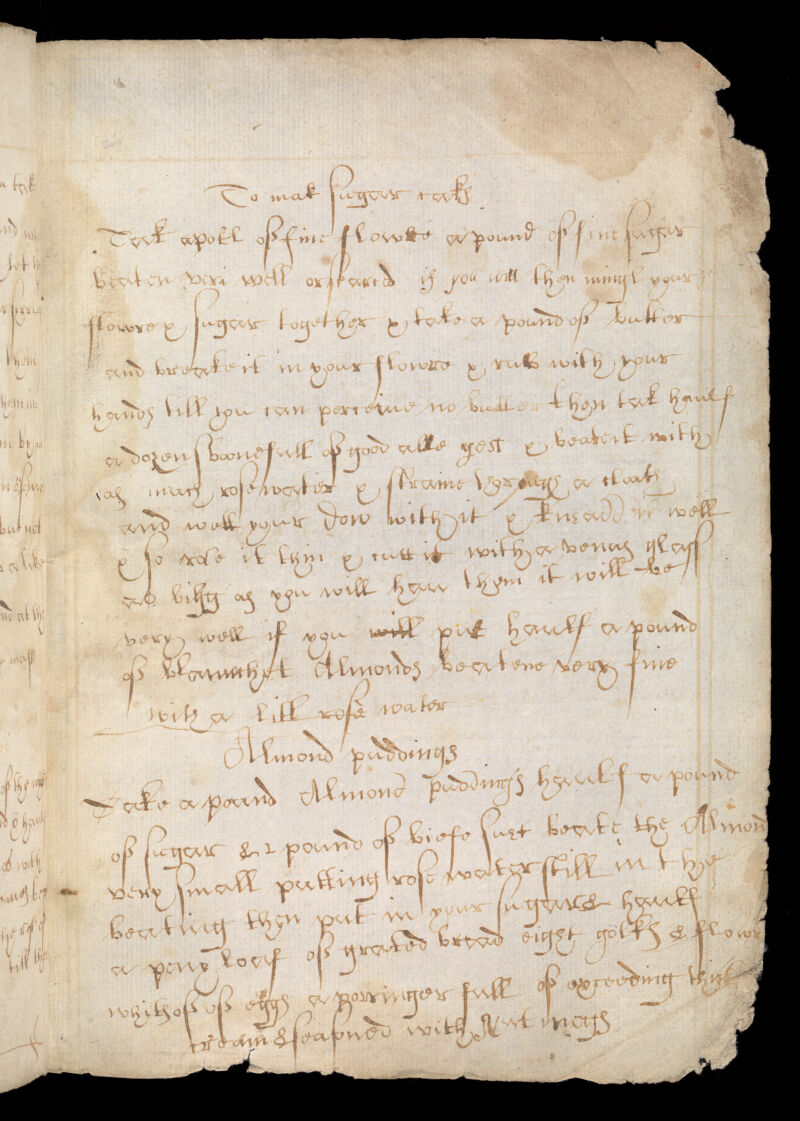 To mak sugar cakes
Tak apotl off fine flowre a pound off fine sugar
beaten veri well orsearced if you will then mingl your
flowre & sugar together & take a pound off butter
and breake it in your flowre & rub with your
hands till you can perceive no butter then tak haulf
a dozen spoonefull off good alle yest & beate it with
as mach rosewater & straine thorough a cloath
and wett your dow with it & knead it well
& so role it thin & cutt it with a venus glass
as bihg as you will haue them it will be
very well if you will put haulf a pound
off blanchet Almonds beatene very fine
with a litl rose water
Almond puddings
Take a pound Almond puddings haulf a pound
off sugar & 2 pound off biefe suet beate the Almond
very small putting rose water still in the
beating then put in your sugar & haulf
a peny loaf off grated bread eight yolks & flowr
whithoff off eggs a porringer full off exceeding thick
cream & seasned with Nutmegs